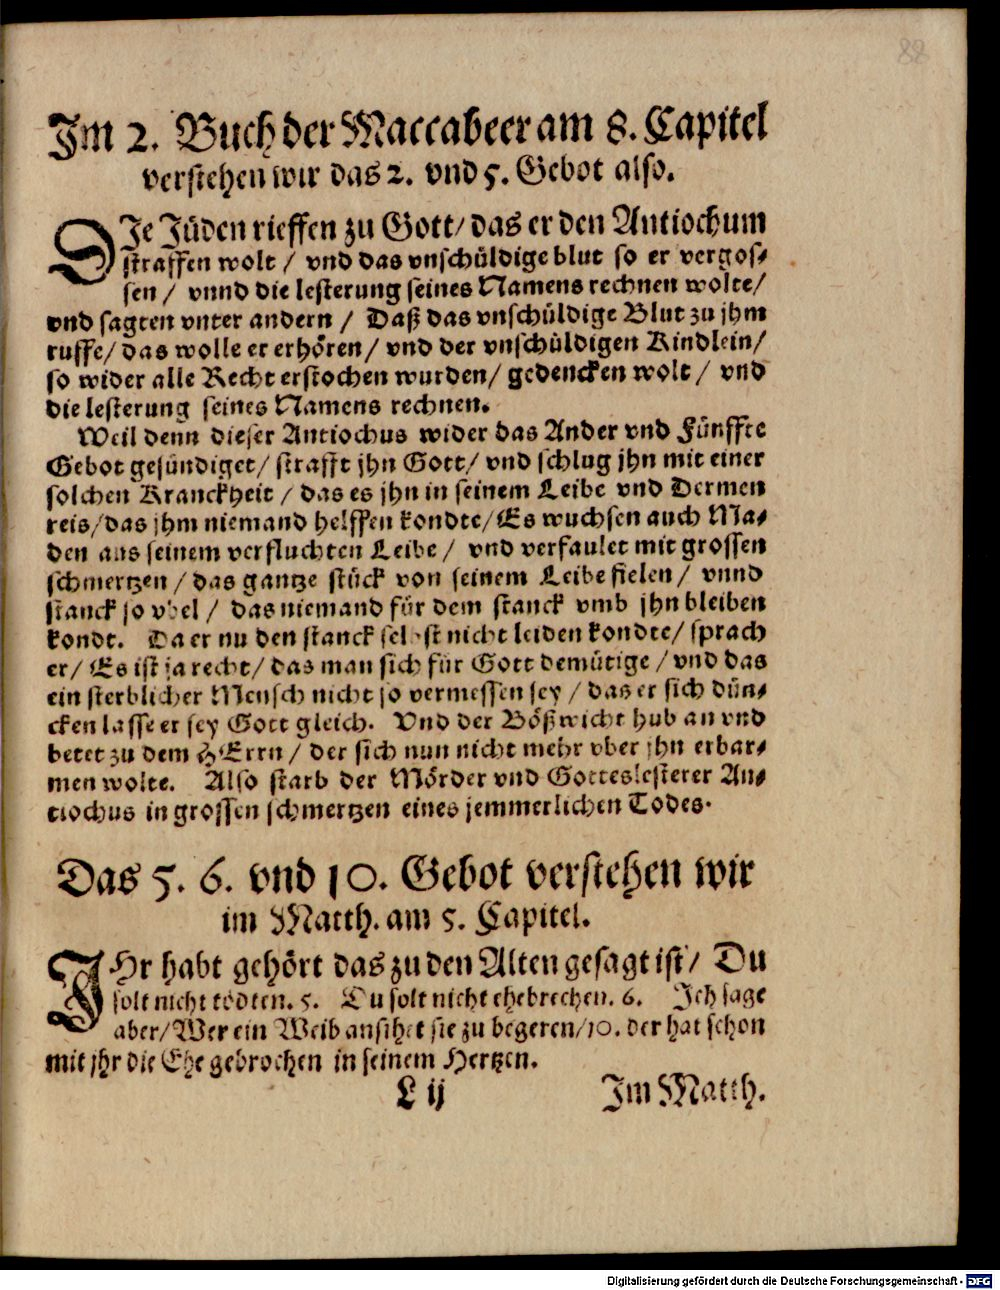 88
Im 2. Buch der Maccabeer am 8. Capitel
verstehen wir das 2. vnd 5. Gebot also.
DIe Jüden rieffen zu Gott/ das er den Antiochum
straffen wolt / vnd das vnschüldige blut so er vergos-
sen / vnnd die lesterung seines Namens rechnen wolte/
vnd sagten vnter andern / Daß das vnschüldige Blut zu jhm
ruffe/ das wolle er erhören/ vnd der vnschüldigen Kindlein/
so wider alle Recht erstochen wurden/ gedencken wolt / vnd
die lesterung seines Namens rechnen.
Weil denn dieser Antiochus wider das Ander vnd Fünffte
Gebot gesündiget/ strafft jhn Gott/ vnd schlug jhn mit einer
solchen Kranckheit / das es jhn in seinem Leibe vnd Dermen
reis/das jhm niemand helffen kondte/Es wuchsen auch Ma-
den aus seinem verfluchten Leibe / vnd verfaulet mit grossen
schmertzen / das gantze stück von seinem Leibe fielen / vnnd
stanck so vbel / das niemand für dem stanck vmb jhn bleiben
kondt. Da er nu den stanck selbst nicht leiden kondte/ sprach
er/ Es ist ja recht/ das man sich für Gott demütige / vnd das
ein sterblicher Mensch nicht so vermessen sey / das er sich dün-
cken lasse er sey Gott gleich. Vnd der Bößwicht hub an vnd
betet zu dem HErrn / der sich nun nicht mehr vber jhn erbar-
men wolte. Also starb der Mörder vnd Gotteslesterer An-
tiochus in grossen schmertzen eines jemmerlichen Todes.
Das 5. 6. vnd 10. Gebot verstehen wir
im Matth. am 5. Capitel.
IHr habt gehört das zu den Alten gesagt ist/ Du
solt nicht tödten. 5. Du solt nicht ehebrechen. 6. Ich sage
aber/Wer ein Weib ansihet sie zu begeren/10. der hat schon
mit jhr die Ehe gebrochen in seinem Hertzen.
L ij
Im Matth.
Digitalisierung gefördert durch die Deutsche Forschungsgemeinschaft - DFG